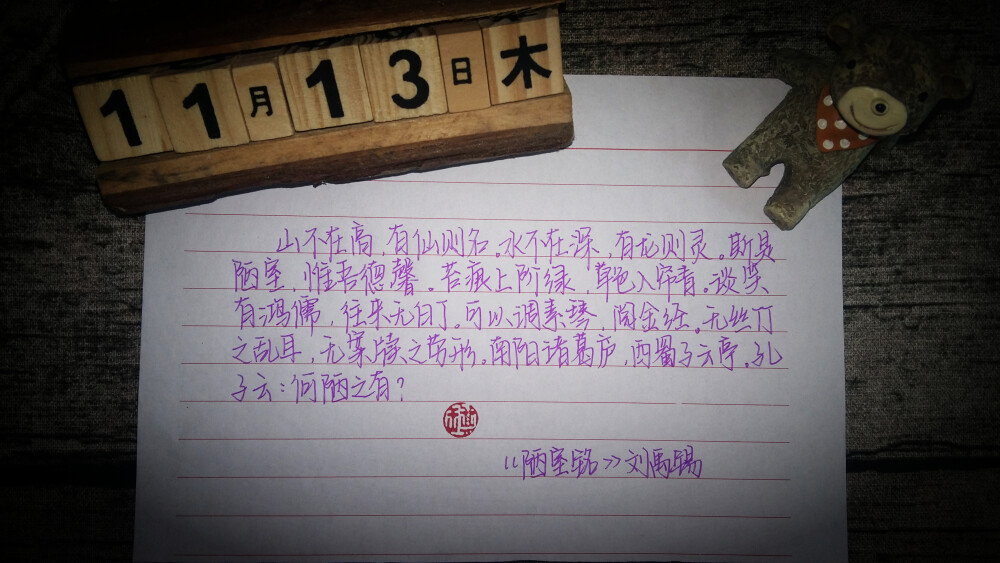 11月13日木
山不在高,有仙则名。水不在深,有龙则灵。斯是
陋室,惟吾德馨。苔痕上阶绿,草色入帘青。谈笑
有鸿儒,往来无白丁。可以调素琴,阅金经。无丝竹
之乱耳,无案牍之劳形。南阳诸葛庐,西蜀子云亭。孔
子云:何陋之有?
《陋室铭》刘禹锡